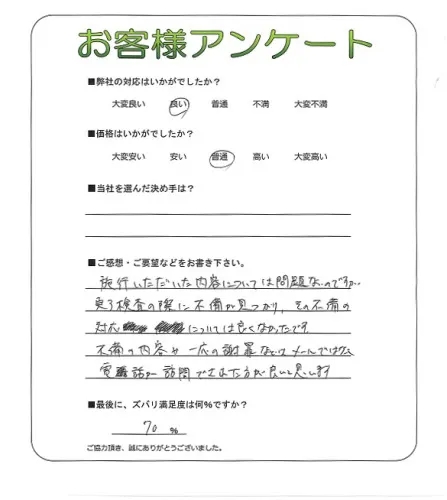 お客様アンケート
■弊社の対応はいかがでしたか？
大変良い 良い 普通 不満 大変不満
■価格はいかがでしたか？
大変安い 安い 普通 高い 大変高い
■当社を選んだ決め手は？
■ご感想・ご要望などをお書き下さい。
施行いただいた内容については問題ないのですが、
完了検査の際に不備が見つかり、その不備の
対応については良くなかったです
不備の内容や一応の謝罪などはメールではなく
電話か訪問でされた方が良いと思います
■最後に、ズバリ満足度は何％ですか？
70 %
ご協力頂き、誠にありがとうございました。